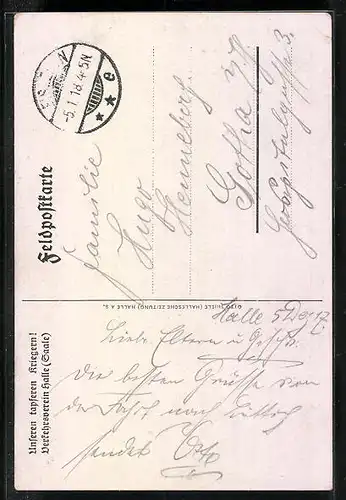 Feldpostkarte
-5.1.18.4-5N
* * e
Familie
Hugo
Henneberg
Gotha
3.
OTTO THIELE (HALLESCHE ZEITUNG) HALLE A S.
Unseren tapferen Kriegern!
Verkehrsverein Halle (Saale)
Halle 5
Liebe Eltern u. Geschw.
Die besten Grüsse von
der Fahrt nach Lüttich
sendet Otto